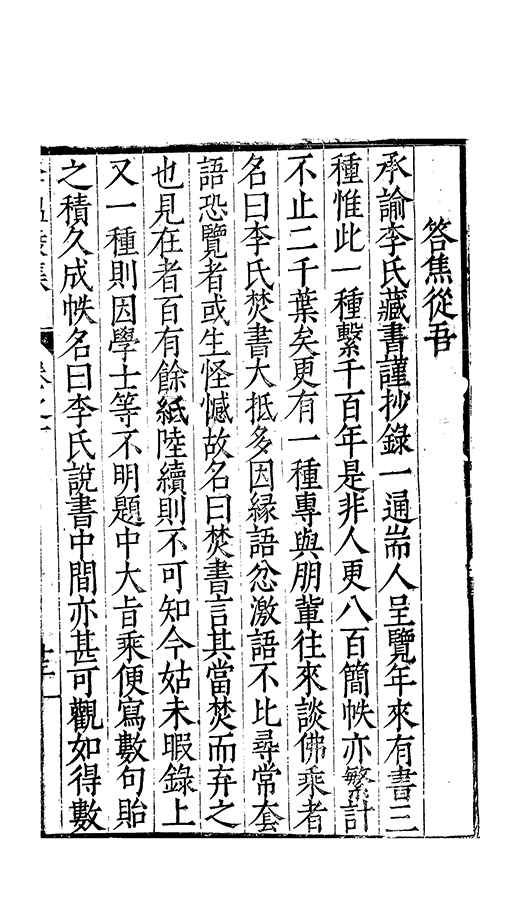 答焦從吾
承諭李氏藏書謹抄錄一通耑人呈覽年來有書三
種惟此一種繫千百年是非人更八百簡帙亦繁計
不止二千葉矣更有一種專與朋輩往來談佛乘者
名曰李氏焚書大抵多因緣語忿激語不比尋常套
語恐覽者或生怪憾故名曰焚書言其當焚而弃之
也見在者百有餘紙陸續則不可知今姑未暇錄上
又一種則因學士等不明題中大旨乘便寫數句貽
之積久成帙名曰李氏說書中間亦甚可觀如得數